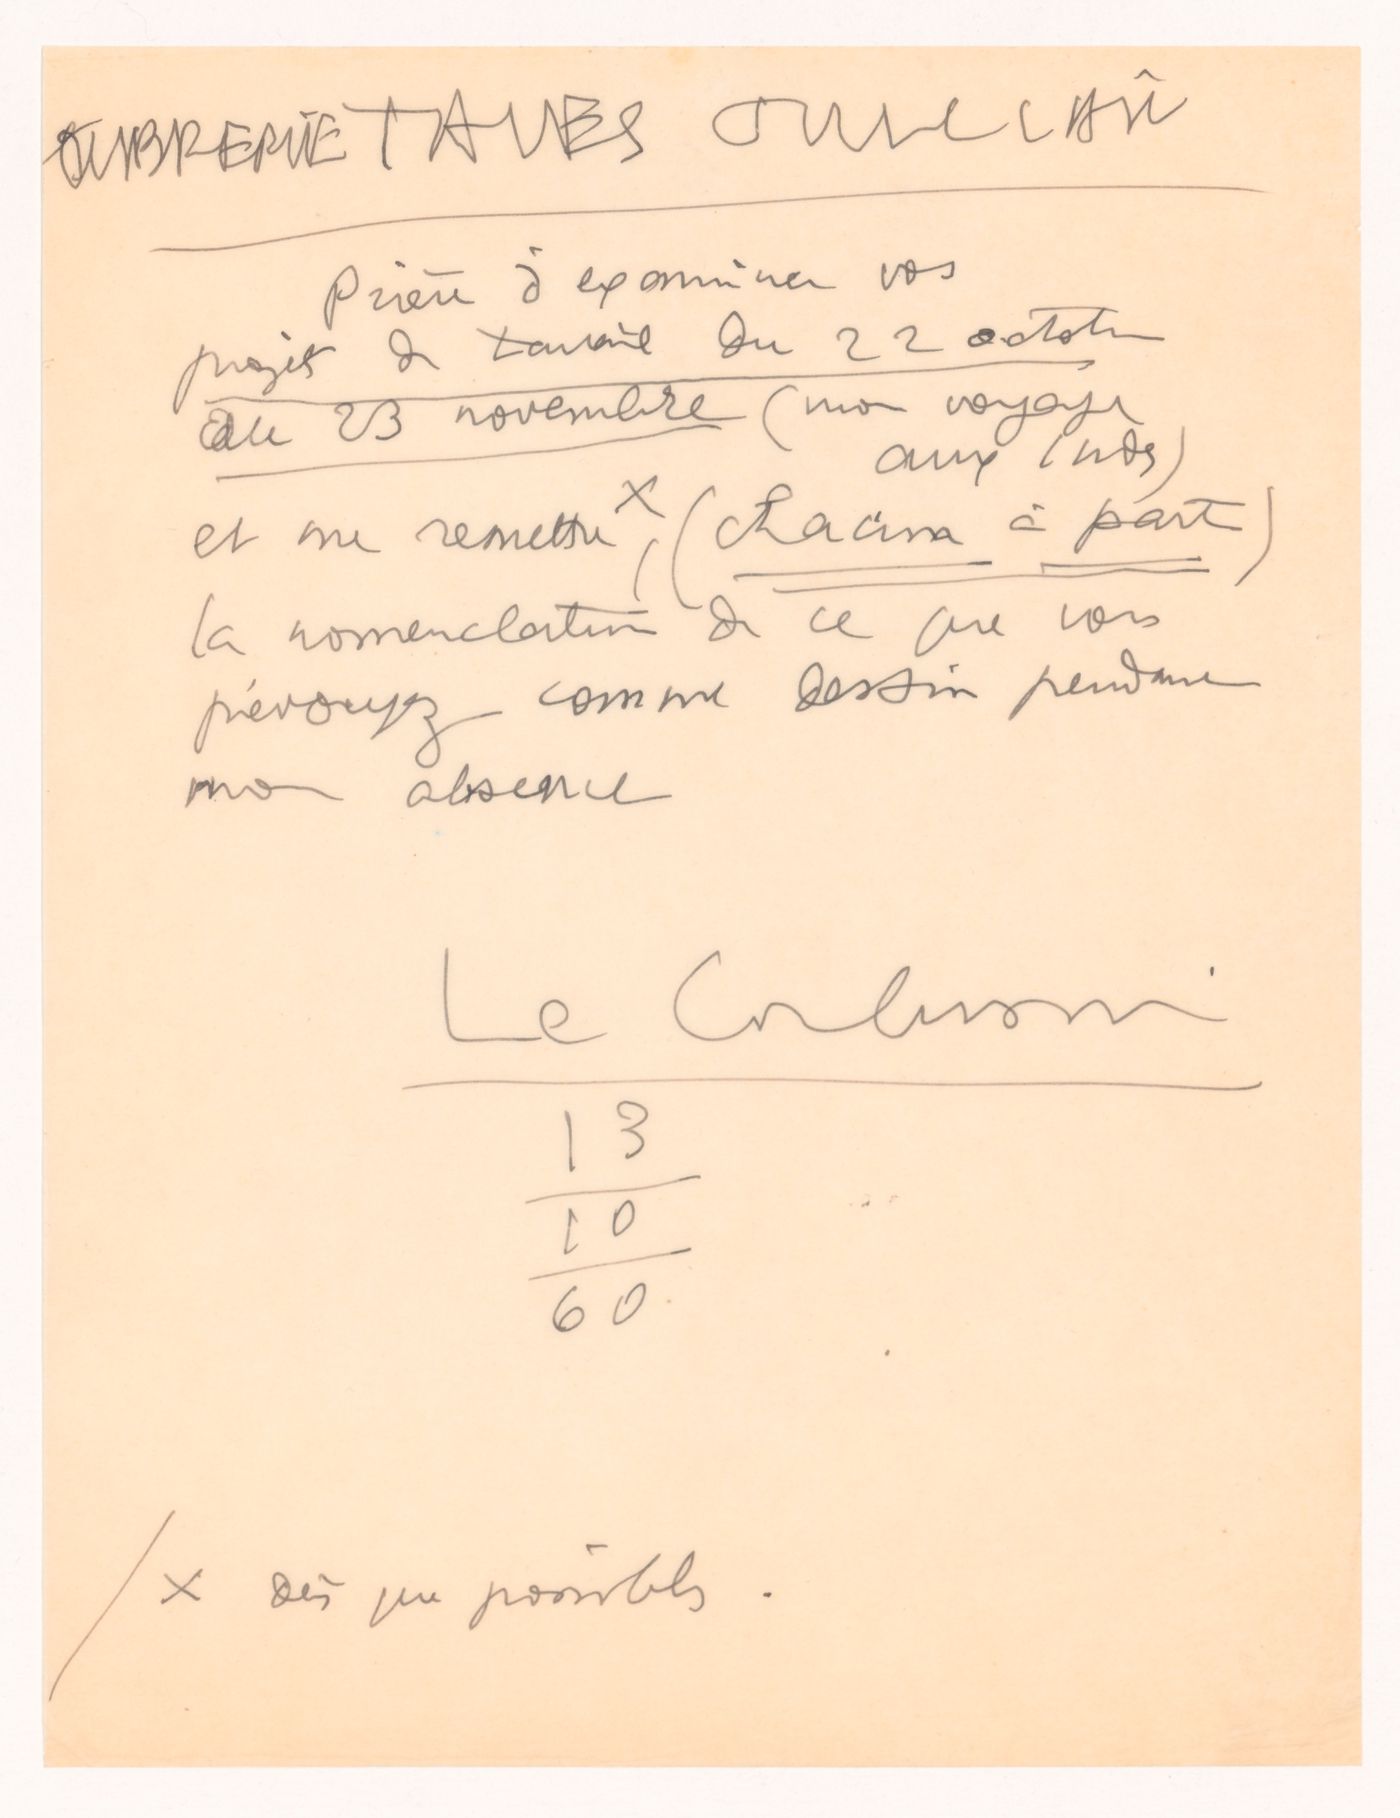 OUBRERIE TAVES JULLIAN
Prière d'examiner vos
projet de travail du 22 octobre
au 23 novembre (mon voyage
aux Indes)
et me remettre x, (chacun à part)
la nomenclature de ce que vous
prévoyez comme dessin pendant
mon absence
Le Corbusier
13
10
60
x dès que possible.